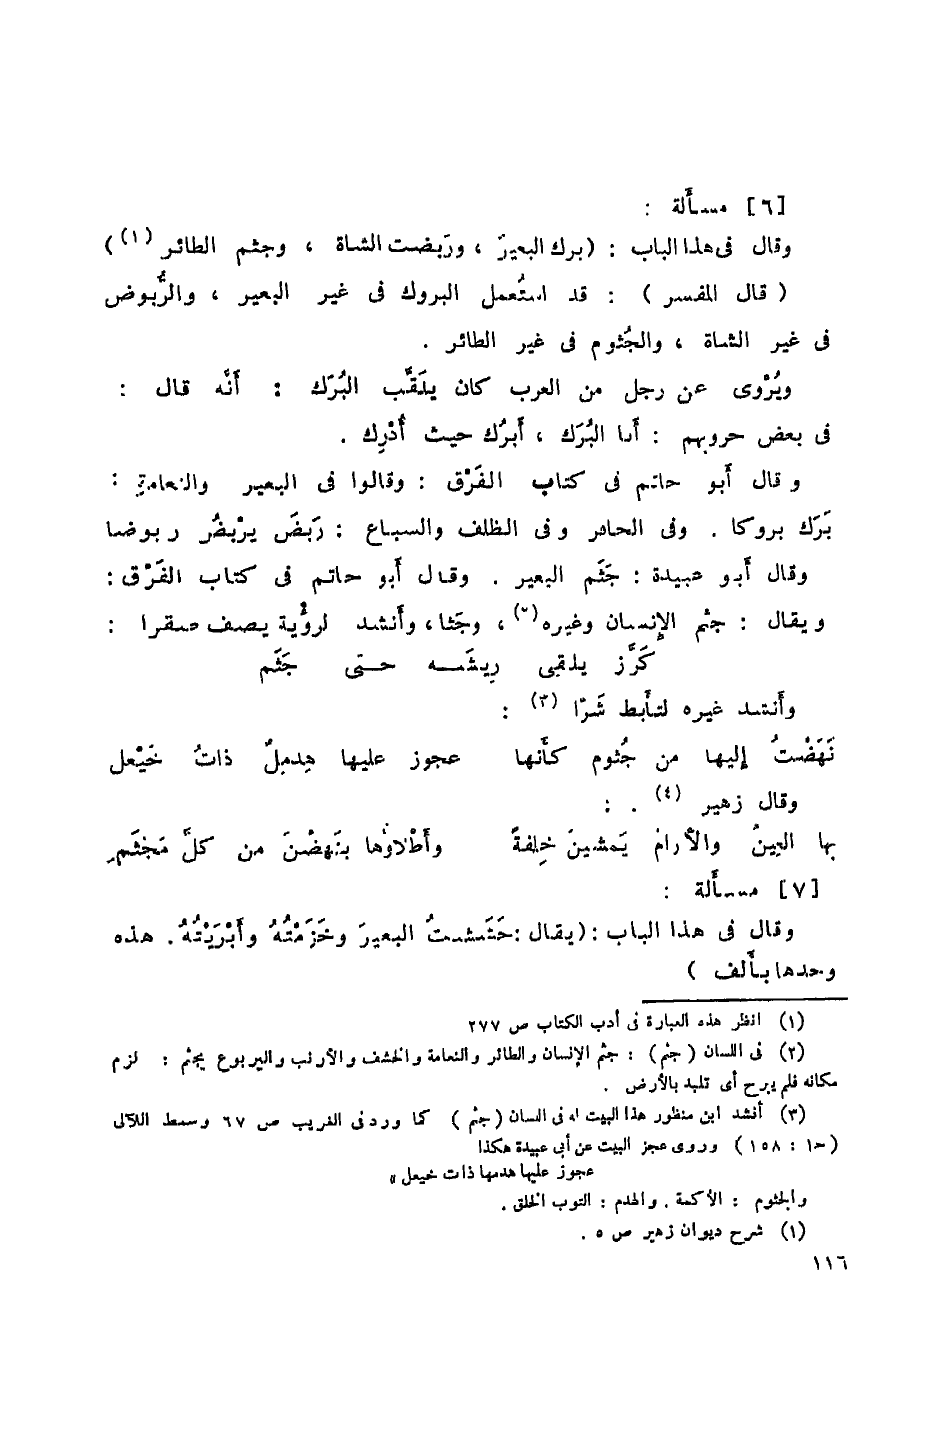 [٦] مسألة :
وقال فى هذا الباب : (برك البعيرُ ، ورَبضت الشاة ، وجثم الطائر (١))
( قال المفسر ) : قد استُعمل البروك فى غير البعير ، والرُّبوض
فى غير الشاة ، والجُثوم فى غير الطائر .
ويُرْوى عن رجل من العرب كان يلَقَّب البُرَك : أَنَّه قال :
فى بعض حروبهم : أَنا البُرَك ، أَبرُك حيث أُدْرِك .
وقال أَبو حاتم فى كتاب الفَرْق : وقالوا فى البعير والنعامة :
بَرَك بروكا . وفى الحافر وفى الظلف والسباع : رَبَض يرْبضُ ربوضا
وقال أَبو عبيدة : جَثَم البعير . وقال أَبو حاتم فى كتاب الفَرْق :
ويقال : جثم الإِنسان وغيره(٢) ، وجَثا ، وأَنشد لرؤُبة يصف صقرا :
كَرَّز يلقى رِيشَه حتى جَثَم
وأَنشد غيره لتأَبط شَرّا (٣) :
نَهَضْتُ إليها من جُثوم كأَنها عجوز عليها هِدمِلٌ ذاتُ خَيْعل
وقال زهير (٤) . :
بها العِينُ والأرامُ يَمشينَ خِلفةً وأَطْلاؤها ينَهضْنَ من كلِّ مَجْثَمِ
[٧] مسأَلة :
وقال فى هذا الباب : (يقال : خَشَشتُ البعيرَ وخَزَمْتُهُ وأَبْرَيْتُهُ . هذه
وحدها بأَلف )
(١) انظر هذه العبارة فى أدب الكتاب ص ٢٧٧
(٢) فى اللسان ( جثم ) : جثم الإنسان والطائر والنعامة والخشف والأرنب واليربوع يجثم : لزم
مكانه فلم يبرح أى تلبد بالأرض .
(٣) أنشد ابن منظور هذا البيت له فى السان ( جثم ) كما ورد فى الغريب ص ٦٧ وسمط اللآلى
( ح١ : ١٥٨ ) وروى عجز البيت عن أبى عبيدة هكذا
عجوز عليها هدمها ذات خيعل »
والجثوم : الأكمة . والهدم : الثوب الخلق .
(١) شرح ديوان زهير ص ٥ .
١١٦